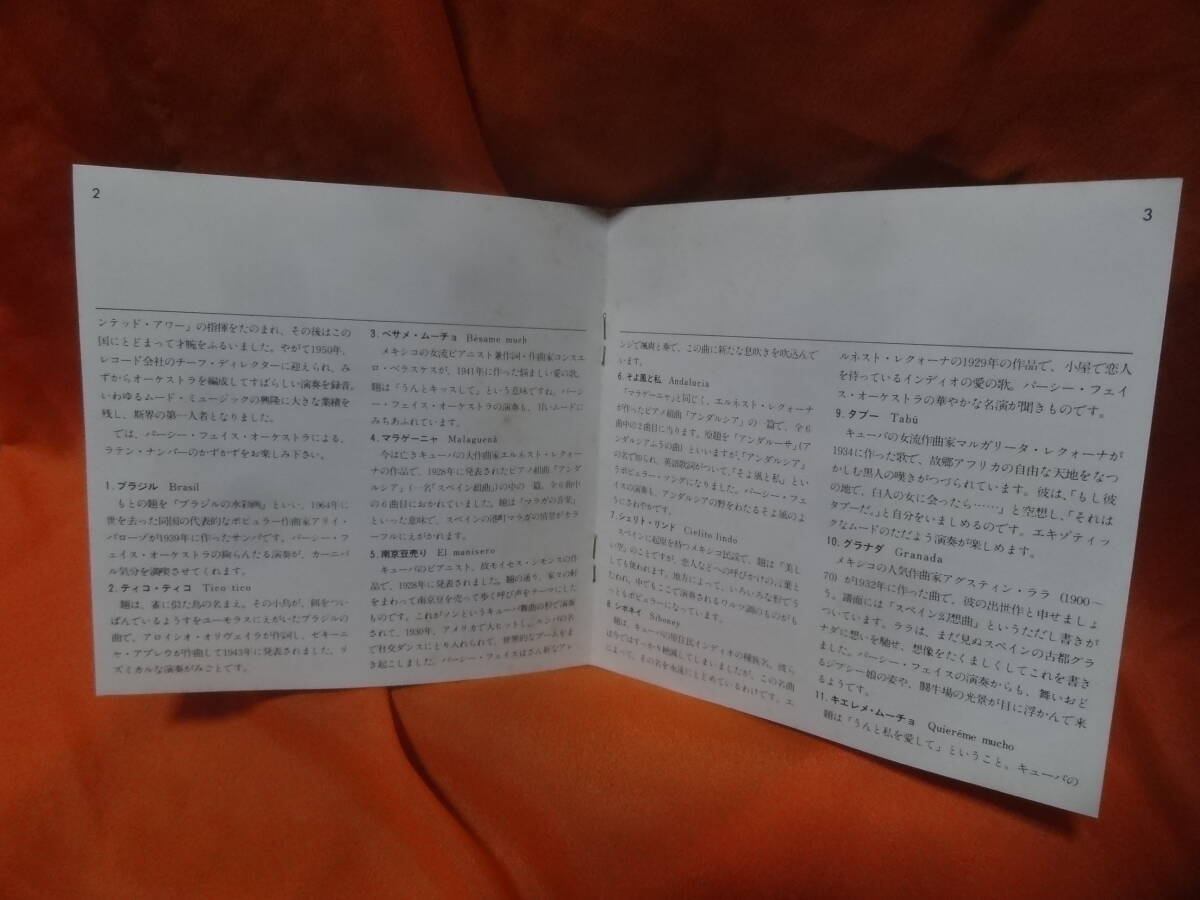 2
ンテッド・アワー」の指揮をたのまれ、その後はこの
国にとどまって才腕をふるいました。やがて1950年、
レコード会社のチーフ・ディレクターに迎えられ、み
ずからオーケストラを編成してすばらしい演奏を録音。
いわゆるムード・ミュージックの興隆に大きな業績を
残し、斯界の第一人者となりました。
では、パーシー・フェイス・オーケストラによる、
ラテン・ナンバーのかずかずをお楽しみ下さい。
1. ブラジル Brasil
もとの題を「ブラジルの水彩画」といい、1964年に
世を去った同国の代表的なポピュラー作曲家アライ・
バローゾが1939年に作ったサンバです。パーシー・フ
ェイス・オーケストラの絢らんたる演奏が、カーニバ
ル気分を満喫させてくれます。
2. ティコ・ティコ Tico tico
題は、雀に似た鳥の名まえ。その小鳥が、餌をつい
ばんでいるようすをユーモラスにえがいたブラジルの
曲で、アロイシオ・オリヴェイラが作詞し、ゼキーニ
ャ・アブレウが作曲して1943年に発表されました。リ
ズミカルな演奏がみごとです。
3. ベサメ・ムーチョ Bésame much
メキシコの女流ピアニスト兼作詞・作曲家コンスエ
ロ・ベラスケスが、1941年に作った悩ましい愛の歌。
題は「うんとキッスして」という意味ですね。パーシ
ー・フェイス・オーケストラの演奏も、甘いムードに
みちあふれています。
4. マラゲーニャ Malagueñá
今は亡きキューバの大作曲家エルネスト・レクォー
ナの作品で、1928年に発表されたピアノ組曲「アンダ
ルシア」(一名「スペイン組曲」)の中の一篇、全6曲中
の6曲目におかれていました。題は「マラガの音楽」
といった意味で、スペインの港町マラガの情景がカラ
ーフルにえがかれます。
5. 南京豆売り El manisero
キューバのピアニスト、故モイセス・シモンスの作
品で、1928年に発表されました。題の通り、家々の軒
をまわって南京豆を売って歩く呼び声をテーマにした
ものです。これがソンというキューバ舞曲の形で演奏
されて、1930年、アメリカで大ヒットし、ルンバの名
で社交ダンスにとり入れられて、世界的なブームをま
き起こしました。パーシー・フェイスはさん新なアレ
3
ンジで颯爽と奏で、この曲に新たな息吹きを吹込んで
います。
6. そよ風と私 Andalucia
「マラゲーニャ」と同じく、エルネスト・レクォーナ
が作ったピアノ組曲「アンダルシア」の一篇で、全6
曲中の2曲目に当ります。原題を「アンダルーサ」(ア
ンダルシアふうの曲)といいますが、「アンダルシア」
の名で知られ、英語歌詞がついて、「そよ風と私」とい
うポピュラー・ソングになりました。パーシー・フェ
イスの演奏も、アンダルシアの野をわたるそよ風のよ
うにさわやかです。
7. シェリト・リンド Cielito lindo
スペインに起原を持つメキシコ民謡で、題は「美し
い空」のことですが、恋人などへの呼びかけの言葉と
しても使われます。地方によって、いろいろな形でう
たわれ、中でもここで演奏されるワルツ調のものがも
っともポピュラーになっています。
8. シボネイ Siboney
題は、キューバの原住民インディオの種族名。彼ら
は今ではすっかり絶滅してしまいましたが、この名曲
によって、その名を永遠にとどめているわけです。エ
ルネスト・レクォーナの1929年の作品で、小屋で恋人
を待っているインディオの愛の歌。パーシー・フェイ
ス・オーケストラの華やかな名演が聞きものです。
9. タブー Tabú
キューバの女流作曲家マルガリータ・レクォーナが
1934に作った歌で、故郷アフリカの自由な天地をなつ
かしむ黒人の嘆きがつづられています。彼は、「もし彼
の地で、白人の女に会ったら……」と空想し、「それは
タブーだ。」と自分をいましめるのです。エキゾティッ
クなムードのただよう演奏が楽しめます。
10. グラナダ Granada
メキシコの人気作曲家アグスティン・ララ (1900〜
70) が1932年に作った曲で、彼の出世作と申せましょ
う。譜面には「スペイン幻想曲」というただし書きが
ついています。ララは、まだ見ぬスペインの古都グラ
ナダに想いを馳せ、想像をたくましくしてこれを書き
ました。パーシー・フェイスの演奏からも、舞いおど
るジプシー娘の姿や、闘牛場の光景が目に浮かんで来
るようです。
11. キエレメ・ムーチョ Quieréme mucho
題は「うんと私を愛して」ということ。キューバの